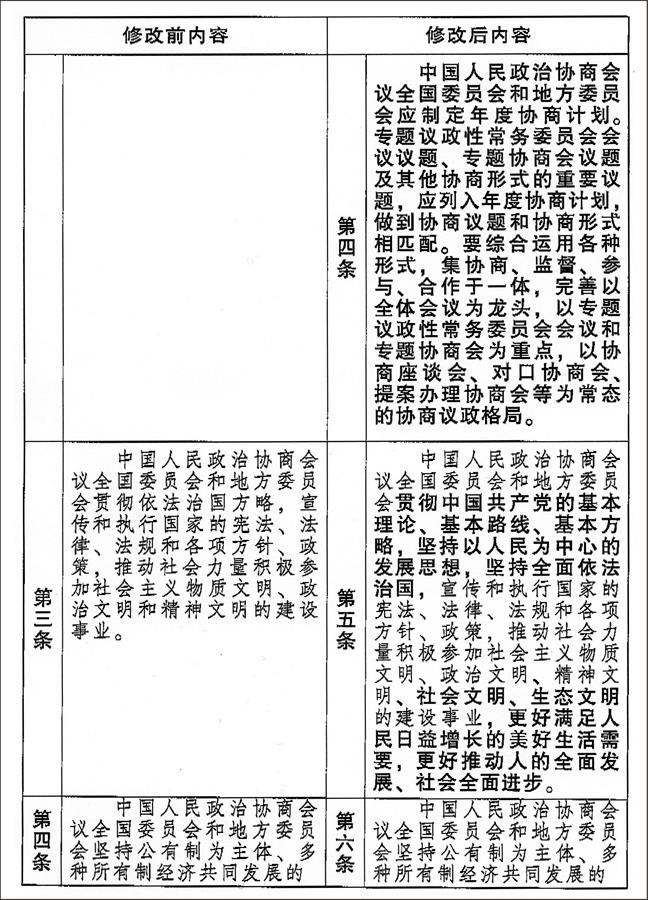 修改前内容
修改后内容
第四条
中国人民政治协商会
议全国委员会和地方委员
会应制定年度协商计划。
专题议政性常务委员会会
议议题、专题协商会议题
及其他协商形式的重要议
题，应列入年度协商计划，
做到协商议题和协商形式
相匹配。要综合运用各种
形式，集协商、监督、参
与、合作于一体，完善以
全体会议为龙头，以专题
议政性常务委员会会议和
专题协商会为重点，以协
商座谈会、对口协商会、
提案办理协商会等为常态
的协商议政格局。
第三条
中国人民政治协商会
议全国委员会和地方委员
会贯彻依法治国方略，宣
传和执行国家的宪法、法
律、法规和各项方针、政
策，推动社会力量积极参
加社会主义物质文明、政
治文明和精神文明的建设
事业。
第五条
中国人民政治协商会
议全国委员会和地方委员
会贯彻中国共产党的基本
理论、基本路线、基本方
略，坚持以人民为中心的
发展思想，坚持全面依法
治国，宣传和执行国家的
宪法、法律、法规和各项
方针、政策，推动社会力
量积极参加社会主义物质
文明、政治文明、精神文
明、社会文明、生态文明
的建设事业，更好满足人
民日益增长的美好生活需
要，更好推动人的全面发
展、社会全面进步。
第四条
中国人民政治协商会
议全国委员会和地方委员
会坚持公有制为主体、多
种所有制经济共同发展的
第六条
中国人民政治协商会
议全国委员会和地方委员
会坚持公有制为主体、多
种所有制经济共同发展的